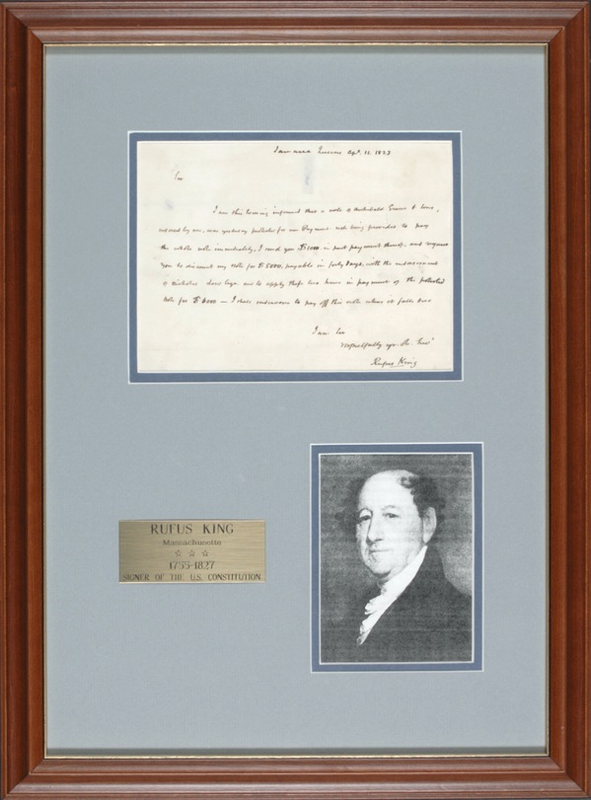 Jamaica Queens Apl. 11. 1823
Sir
I am this evening informed that a note of Archibald Gracie & Sons,
endorsed by me, was yesterday protested for non Payment not being provided to pay
the whole note immediately, I send you in part payment thereof, and request
you to discount my note for payable in forty days, with the endorsement
of Nicholas Low Esqr. and to apply these two sums in payment of the protested
note for — I shall endeavour to pay off this note when it falls due
I am Sir
respectfully yr. Ob. Servt
Rufus King
RUFUS KING
Massachusetts
☆ ☆ ☆
1755-1827
SIGNER OF THE U.S. CONSTITUTION